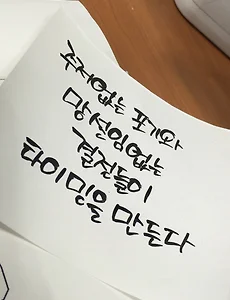 주저없는 포기와
망설임없는
결전들이
타이밍을 만든다